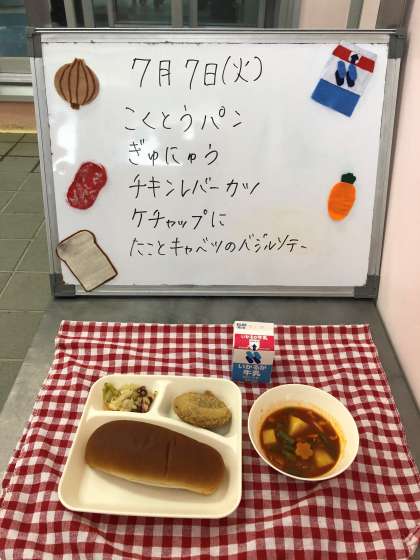 7月7日(火)
こくとうパン
ぎゅにゅう
チキンレバーカツ
ケチャップに
たことキャベツのバジルソテー
いかるが牛乳
いかるが
牛乳